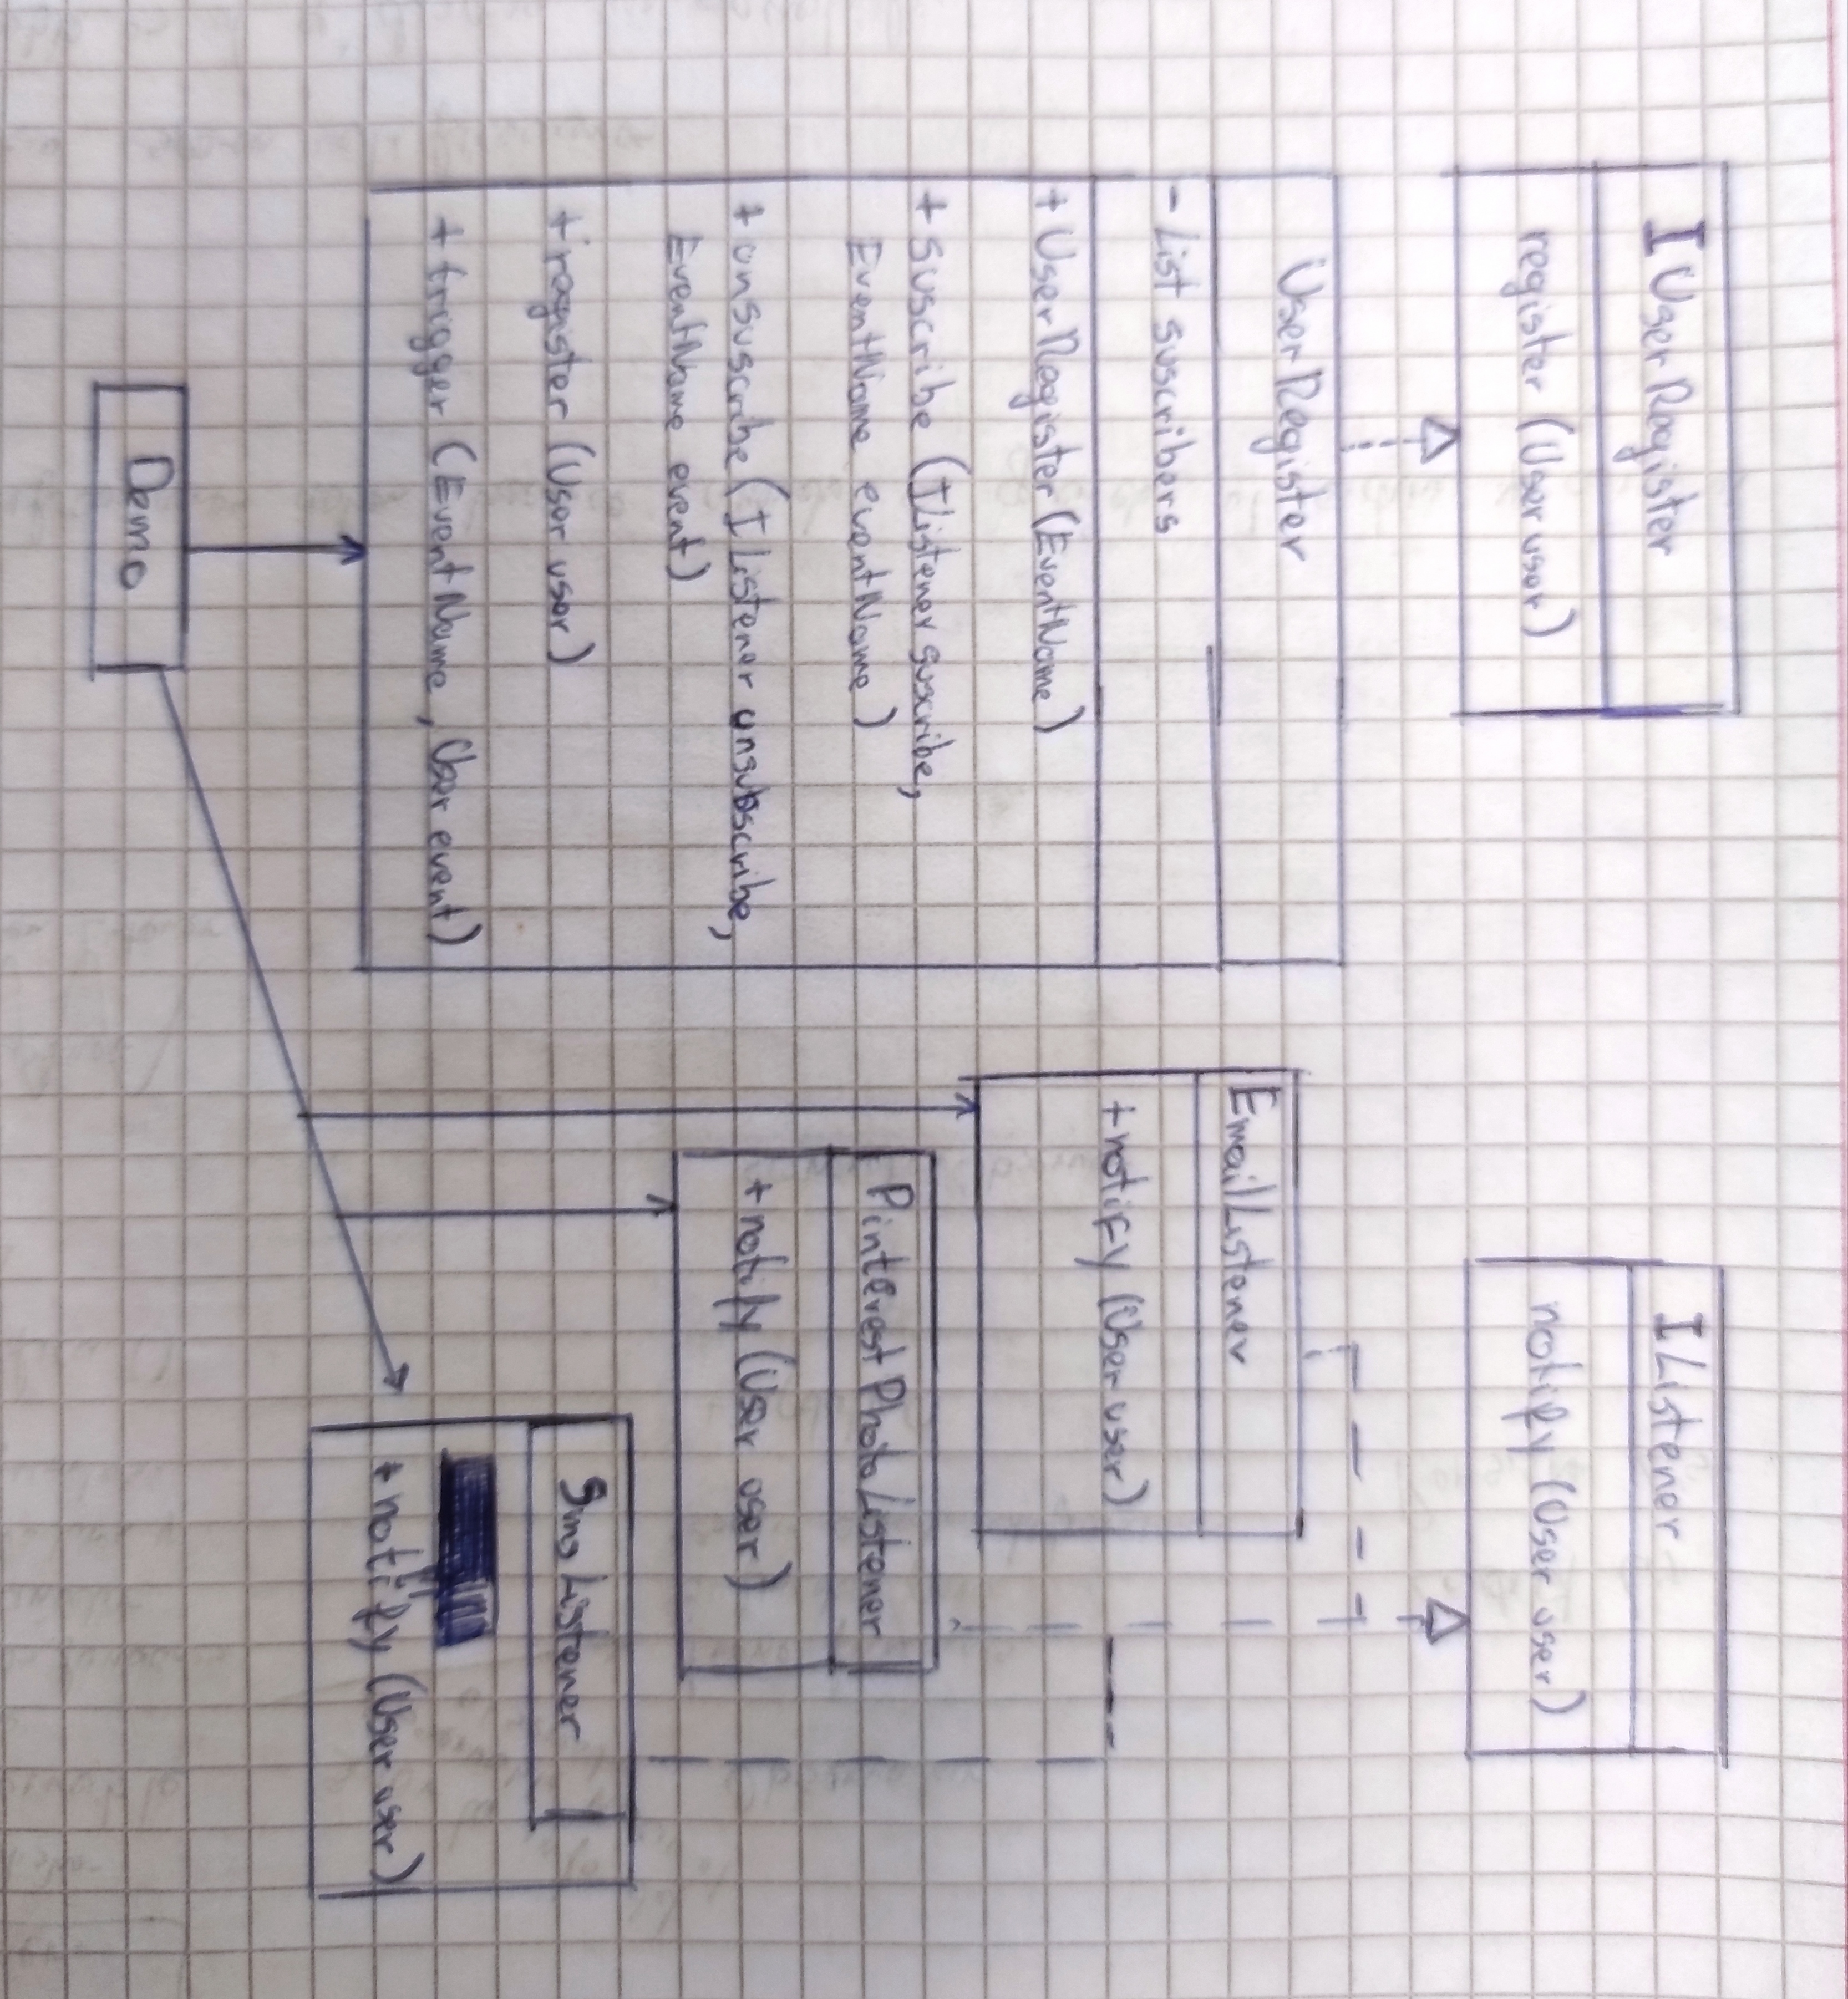 I User Register
register (User user)
User Register
- List suscribers
+ User Register (EventName)
+ suscribe (IListener suscribe,
EventName eventName)
+ unsuscribe (IListener unsubscribe,
EventName event)
+ register (User user)
+ trigger (EventName, User event)
Demo
IListener
notify (User user)
EmailListener
+ notify (User user)
PinterestPhotoListener
+ notify (User user)
Sms Listener
+ notify (User user)